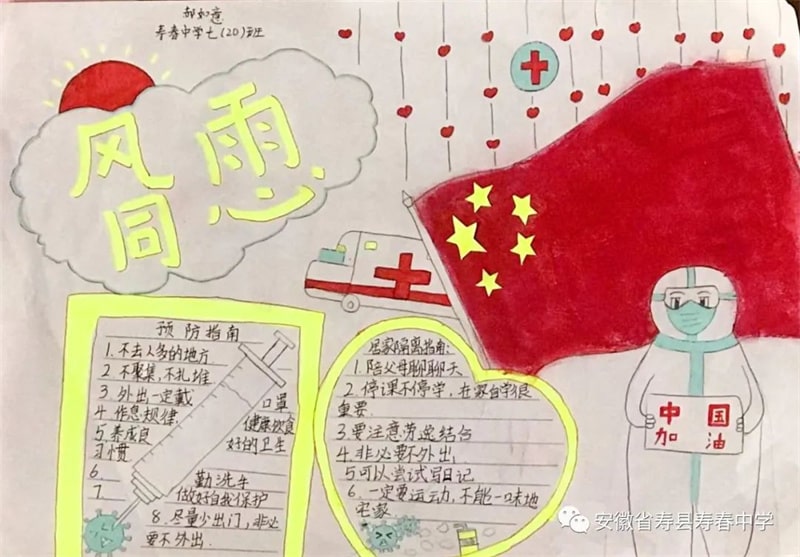 郝如意
寿春中学七(20)班
风雨
同心
预防指南
1.不去人多的地方
2.不聚集,不扎堆
3.外出一定戴 口罩
4.作息规律 健康饮食
5.养成良 好的卫生
习惯
6. 勤洗手
7. 做好自我保护
8.尽量少出门,非必
要不外出.
居家隔离指南:
1.陪父母聊聊天
2.停课不停学,在家自学很
重要.
3要注意劳逸结合
4.非必要不外出
5可以尝试写日记
6.一定要运动,不能一味地
宅家
中国
加油
安徽省寿县寿春中学